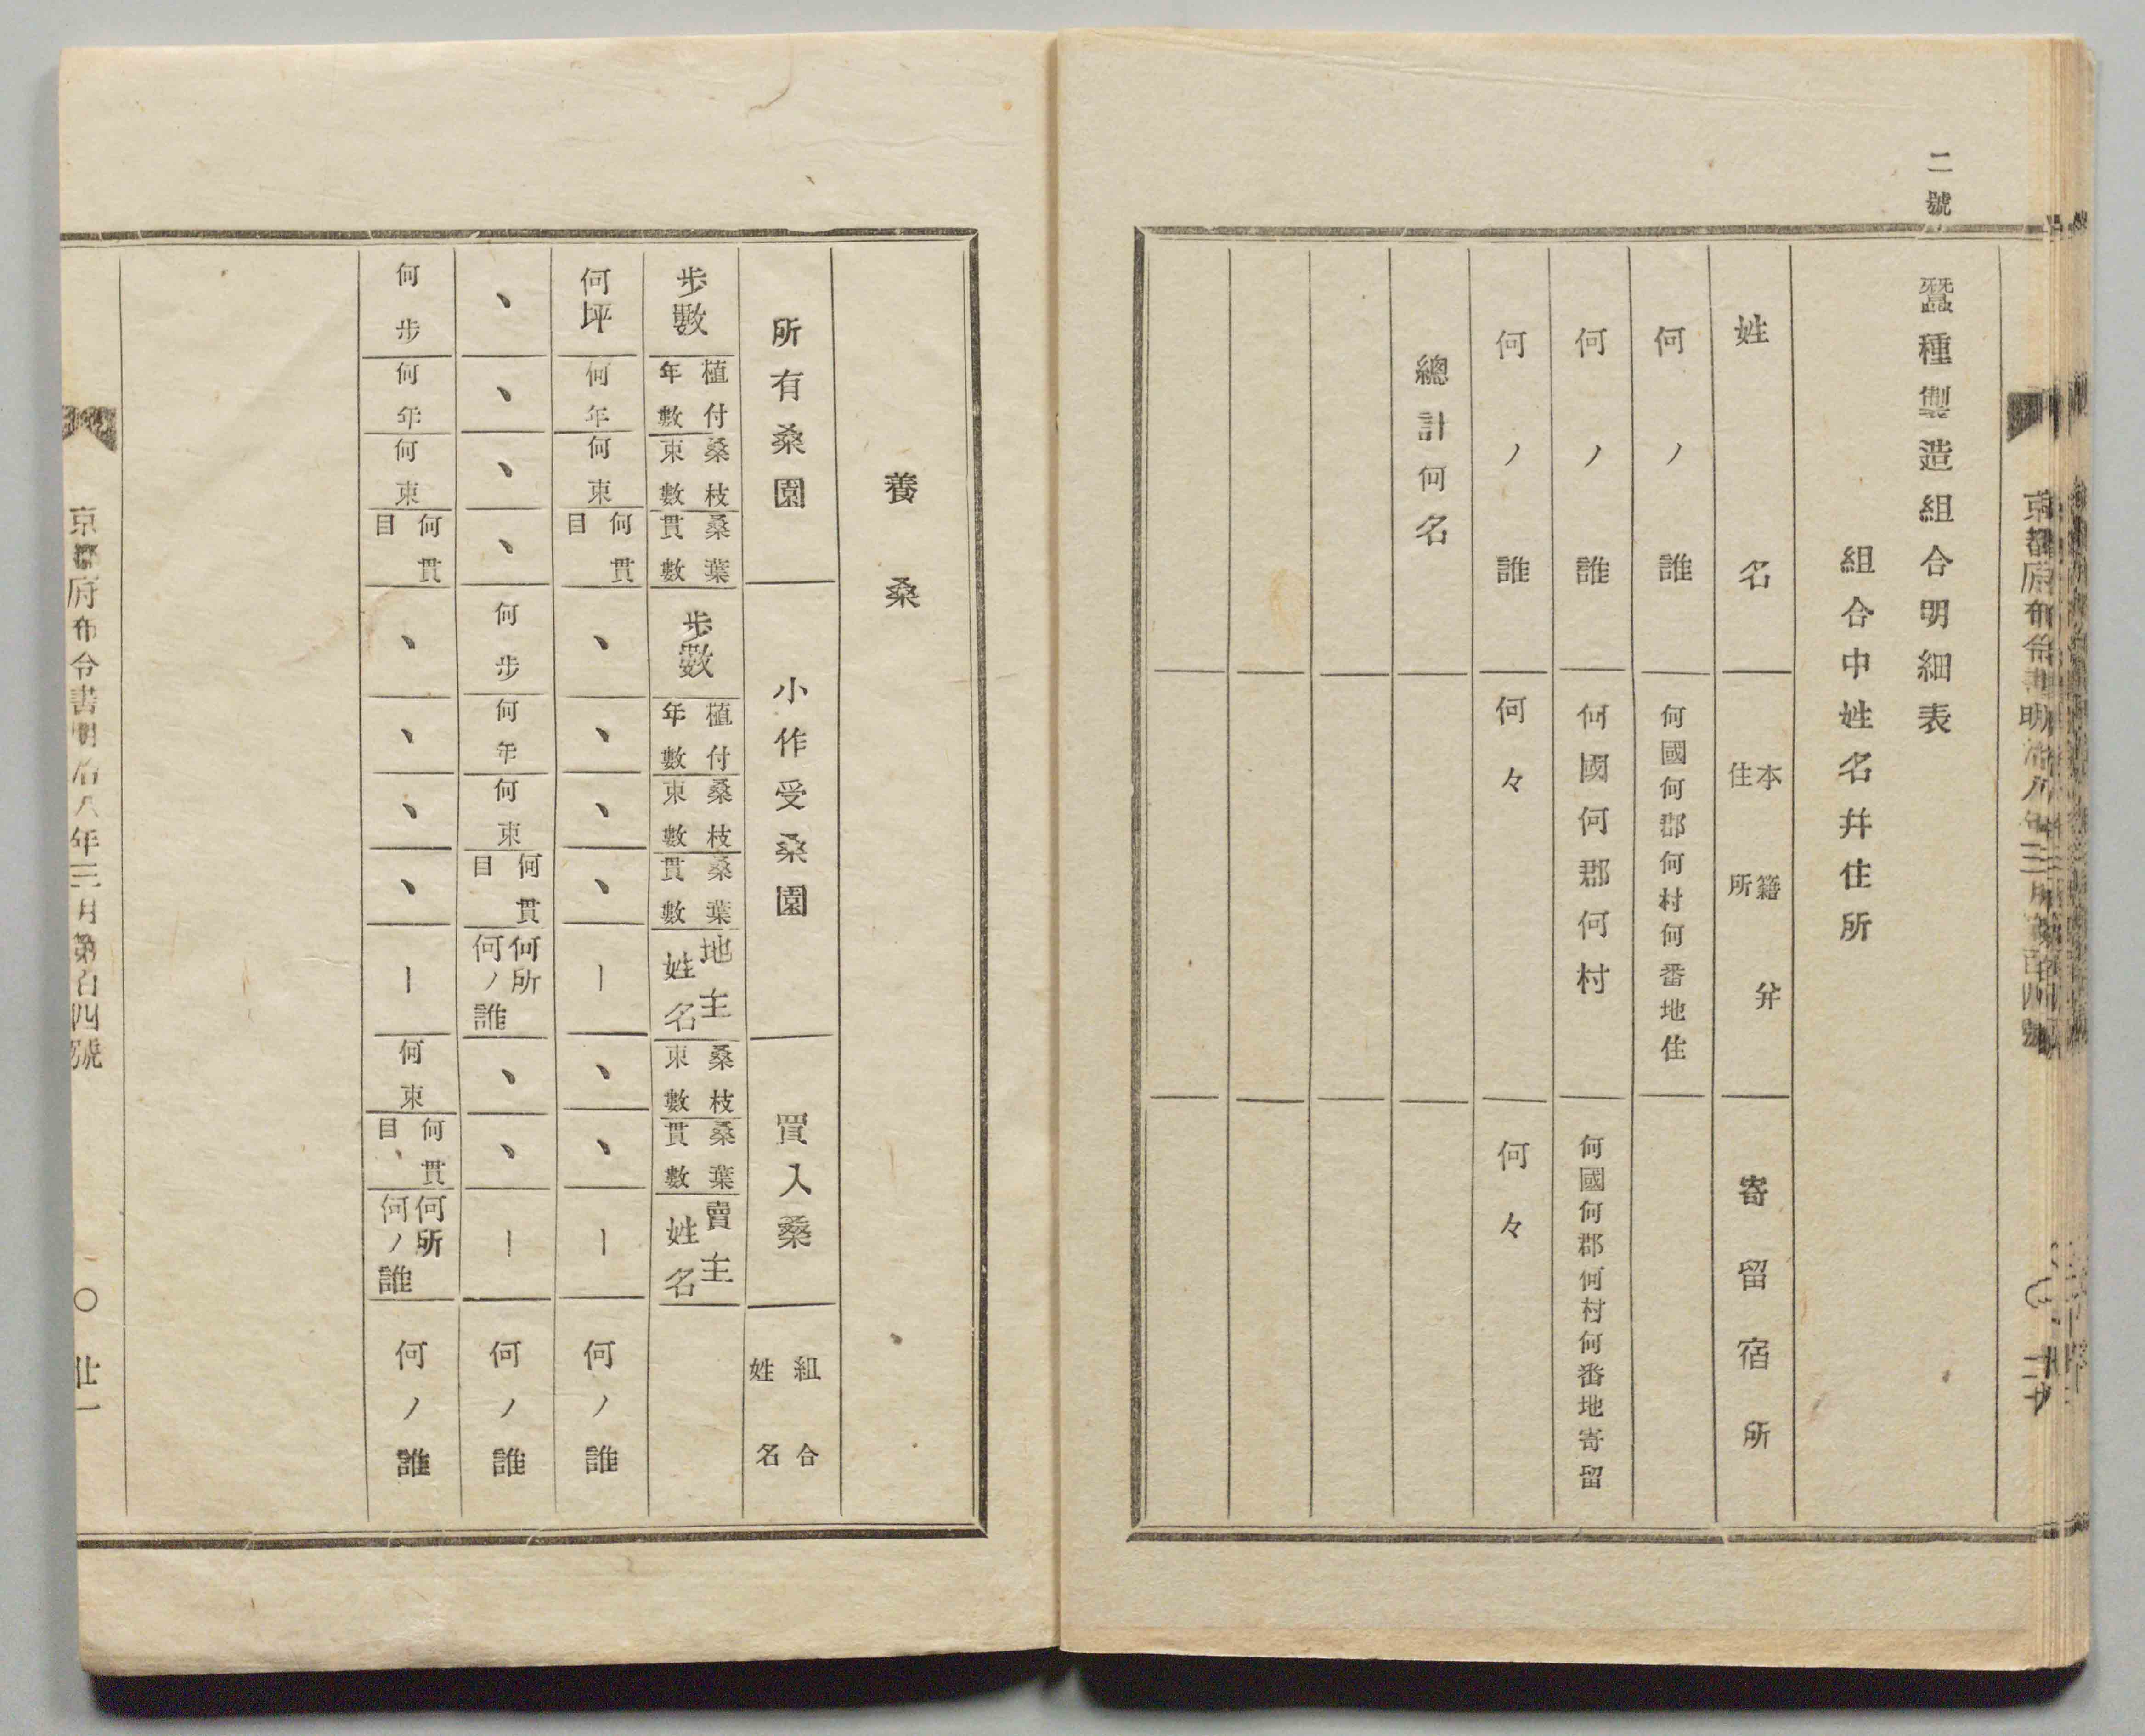 二號
蠶種製造組合明細表
組合中姓名幷住所
姓名
本籍幷住所
寄留宿所
何ノ誰
何國何郡何村何番地住
何ノ誰
何國何郡何村
何國何郡何村何番地寄留
何ノ誰
何々
何々
總計何名
養桑
所有桑園
小作受桑園
買入桑
組合姓名
歩數
植付年數
桑枝束數
桑葉貫數
歩數
植付年數
桑枝束數
桑葉貫數
地主姓名
桑枝束數
桑葉貫數
賣主姓名
何坪
何年
何束
何貫目
、
、
、
、
ー
、
、
ー
何ノ誰
、
、
、
、
何步
何年
何束
何貫目
何所何ノ誰
、
、
ー
何ノ誰
何步
何年
何束
何貫目
、
、
、
、
ー
何束
何貫目、
何所何ノ誰
何ノ誰
京都府布令書明治八年三月第百四號
〇
廿一